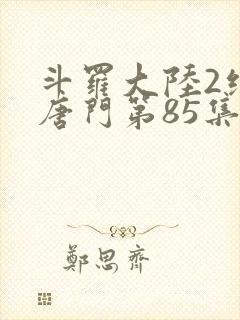 斗羅大陸2
唐門第85集
鄭思齊